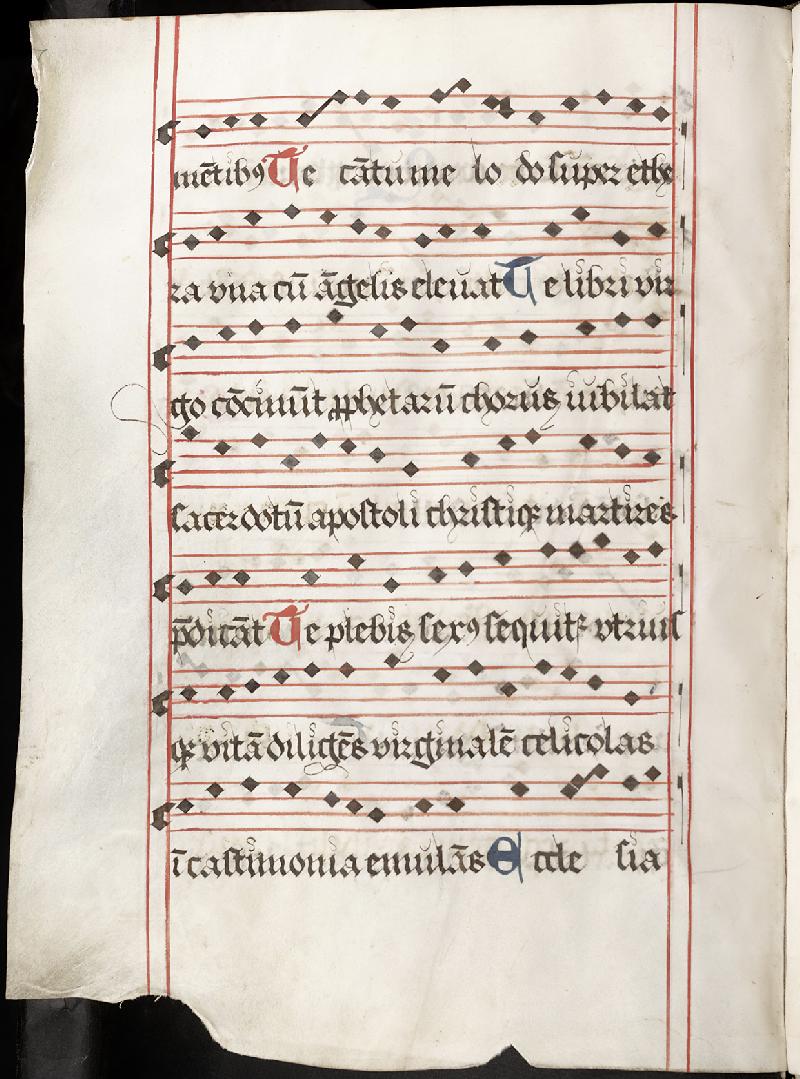 mētibꝰ Te cātu me lo do super ethe
ra vna cū āgelis eleuat Te libri vir
go cōcinūt ꝓphetarū chorus iubilat
sacerdotū apostoli christiqꝫ martires
p̄dicāt Te plebis sexꝰ sequit᷑ vtrius
qꝫ vitā diligēs virginalē celicolas
ī castimonia emulās Eccle sia